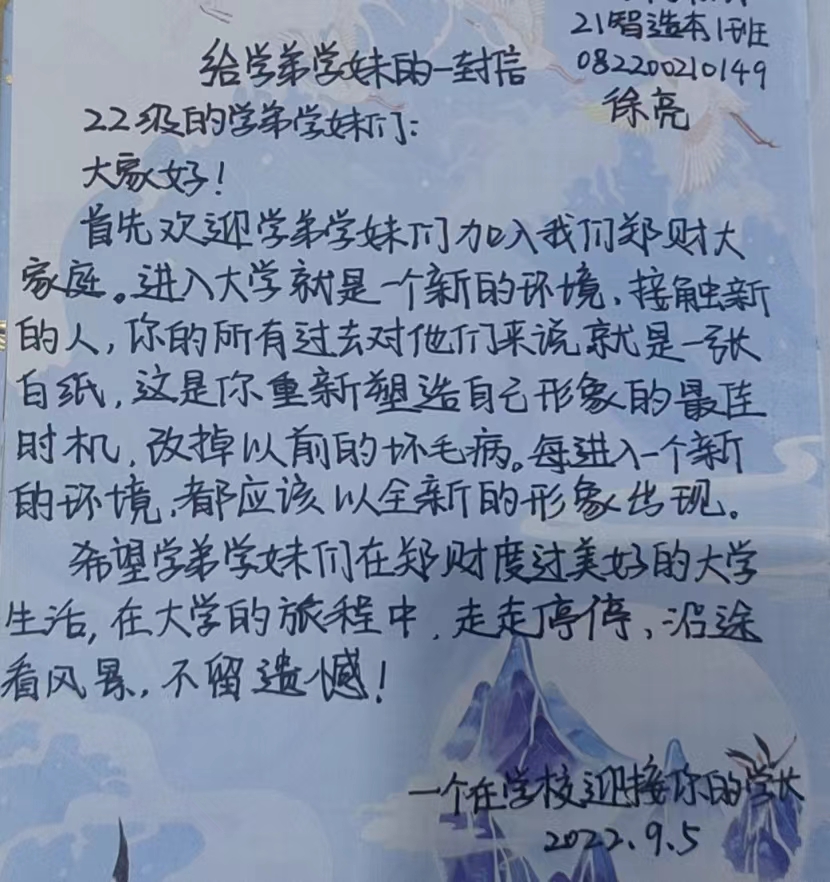 21智造本1班
082200210149
徐亮
给学弟学妹的一封信
22级的学弟学妹们:
大家好!
首先欢迎学弟学妹们加入我们郑财大
家庭。进入大学就是一个新的环境、接触新
的人,你的所有过去对他们来说就是一张
白纸,这是你重新塑造自己形象的最佳
时机,改掉以前的坏毛病。每进入一个新
的环境,都应该以全新的形象出现。
希望学弟学妹们在郑财度过美好的大学
生活,在大学的旅程中,走走停停、沿途
看风景,不留遗憾!
一个在学校迎接你的学长
2022.9.5